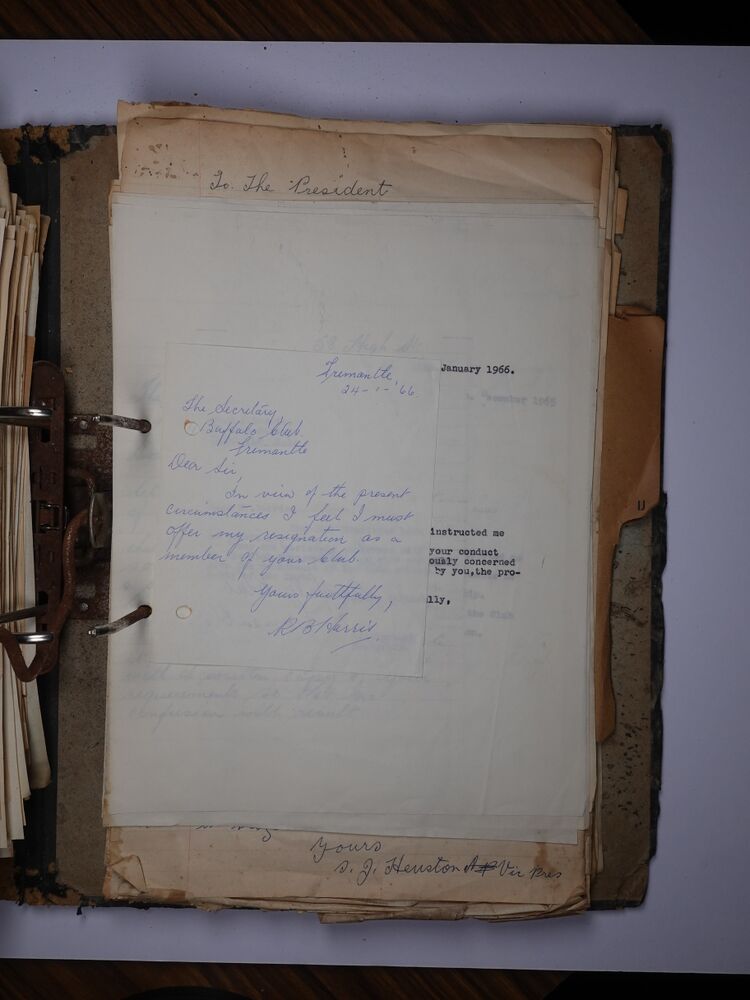 To. The President
68 High St
Fremantle,
24-1-'66
January 1966.
The Secretary,
Buffalo Club.
Fremantle
Dear Sir,
In view of the present
circumstances I feel I must
offer my resignation as a
member of your Club.
Yours faithfully,
R B Harris
instructed me
your conduct
ously concerned
by you,the pro-
lly,
the Club
requirements
confusion will result
Yours
S. J. Heuston Vic Pres